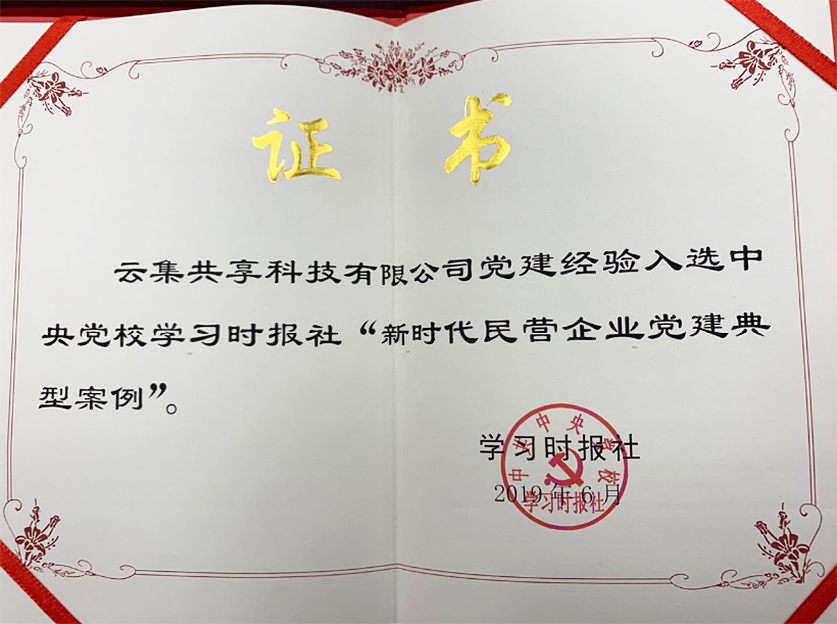 证书
云集共享科技有限公司党建经验入选中
央党校学习时报社“新时代民营企业党建典
型案例”。
学习时报社
2019年6月
中共中央党校
学习时报社